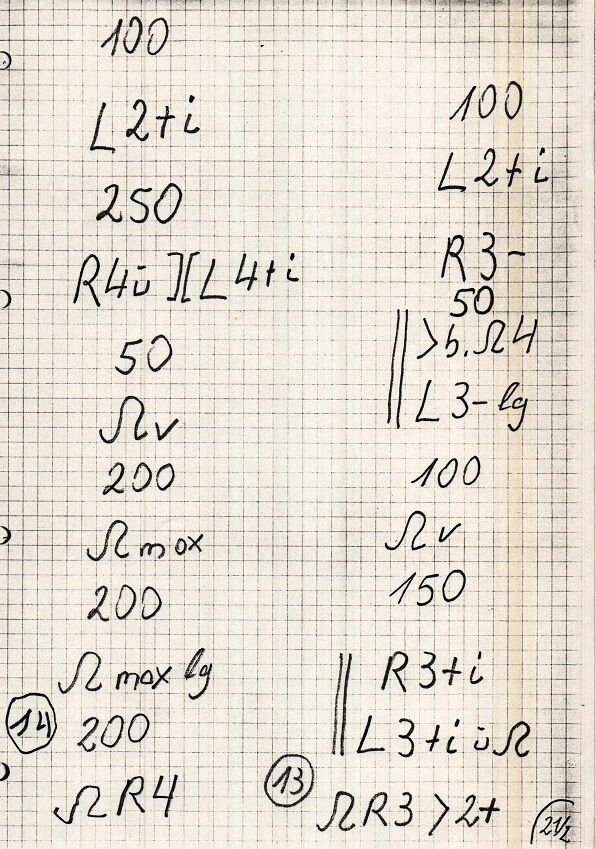 100
L2+i
250
R4ü][L4+i
50
Ωv
200
Ωmax
200
Ωmax lg
14 200
ΩR4
100
L2+i
R3-
50
>b.Ω4
L3-lg
100
Ωv
150
R3+i
L3+iüΩ
13 ΩR3>2+
2 1/2